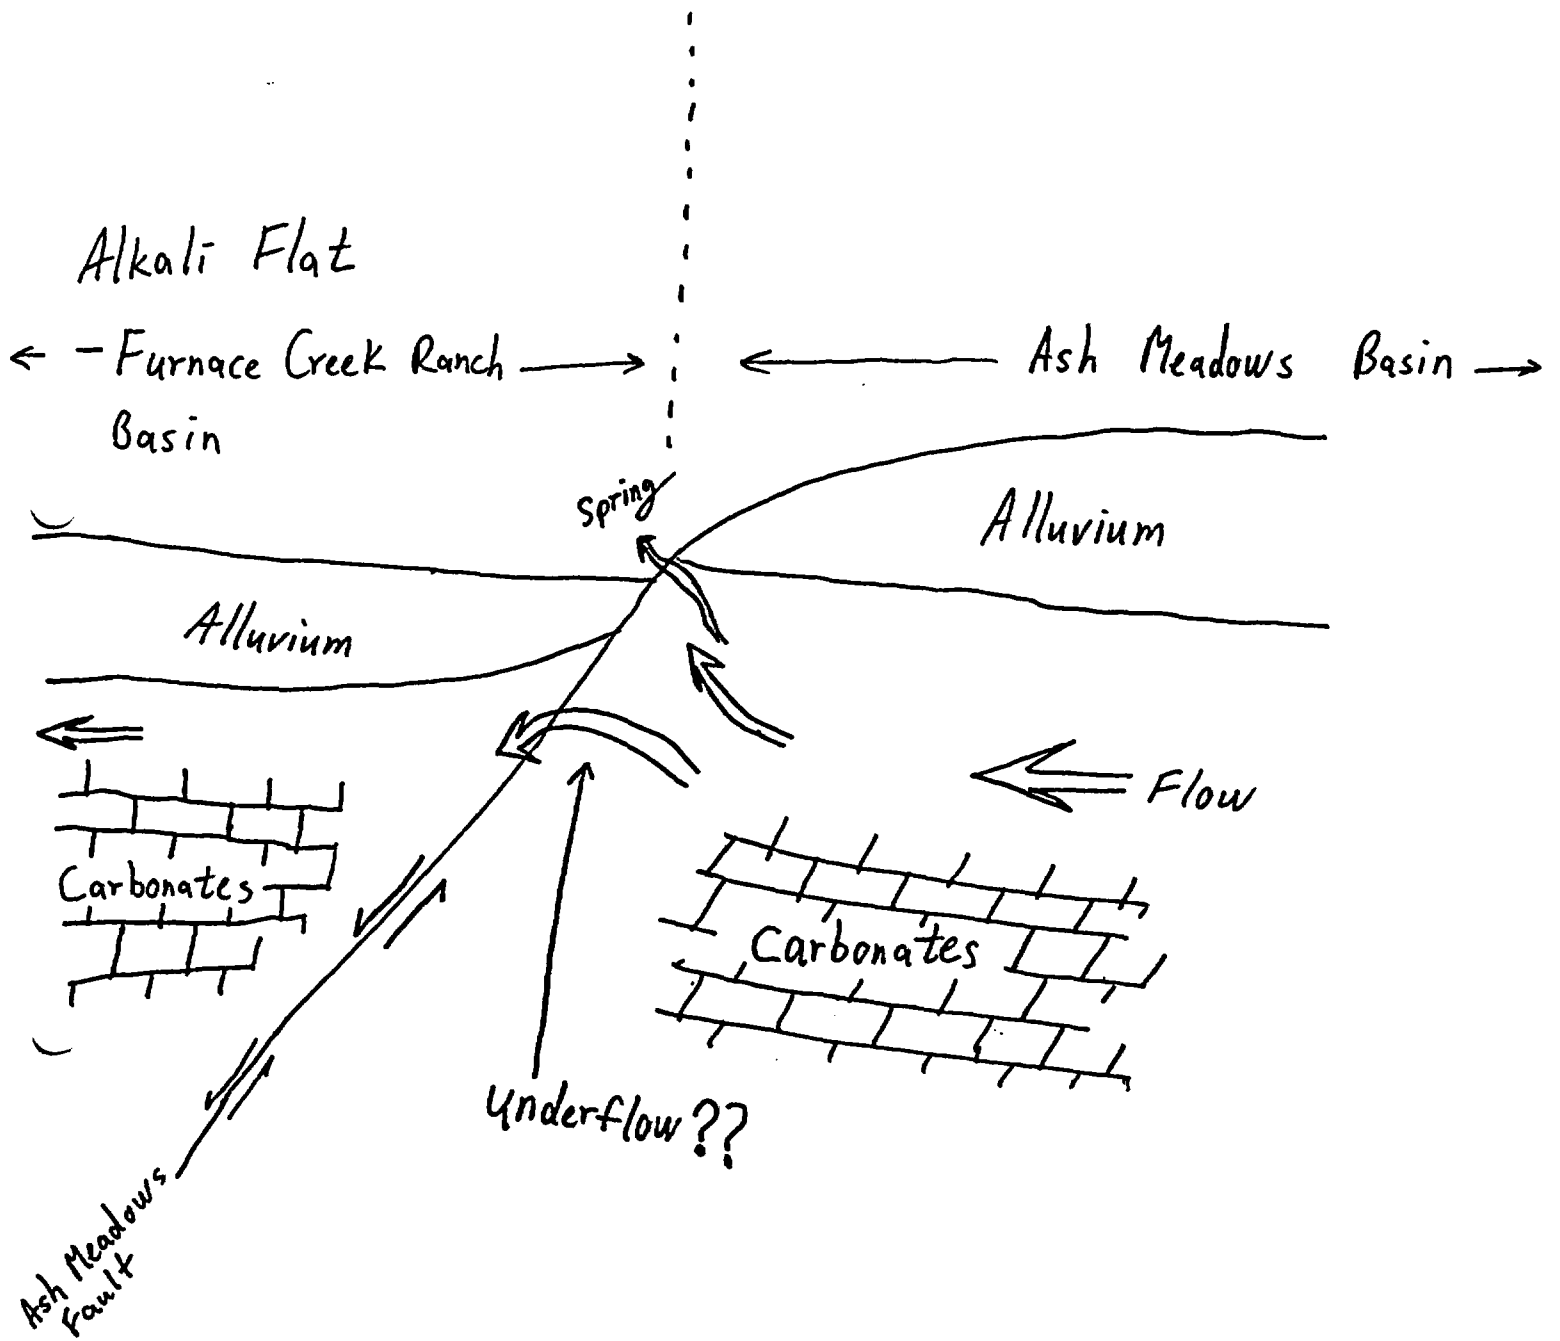 Alkali Flat
- Furnace Creek Ranch
Basin
Ash Meadows Basin
Spring
Alluvium
Alluvium
Flow
Carbonates
Carbonates
Underflow??
Ash Meadows
Fault